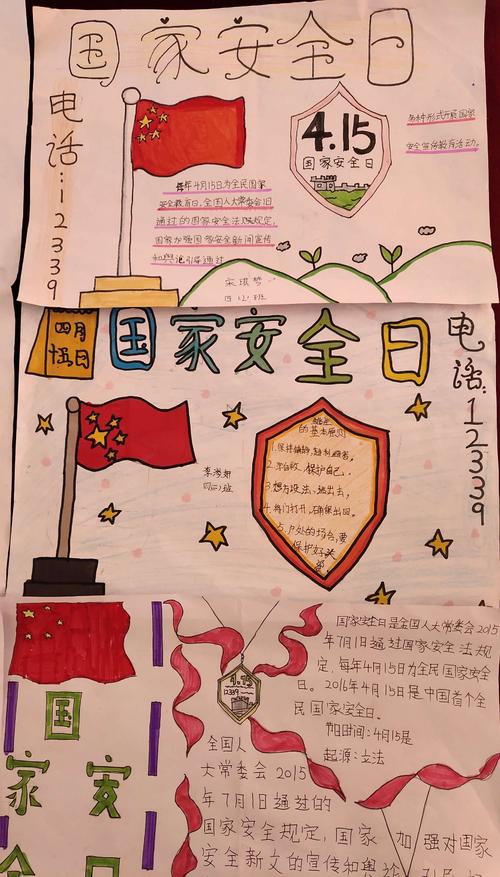 国家安全日
电话:12339
4.15
国家安全日
各种形式开展国家
安全宣传教育活动。
每年4月15日为全民国家
安全教育日。全国人大常委会1日
通过的国家安全法规规定,
国家加强国家安全新闻宣传
和舆论引导通过
四、2、班
四月
十五日
国家安全日
电话:12339
四、二班
的基本原则
1.保持镇静,
保护自己.
3.想方设法,逃出去,
5.户外的场合,要
保护好头
国家安
全日
4.15
12339
国家安全日是全国人大常委会2015
年7月1日通过国家安全法规
定,每年4月15日为全民国家安全
日。2016年4月15日是中国首个全
民国家安全日。
节日时间:4月15是
起源:立法
全国人
大常委会2015
年7月1日通过的
国家安全规定,国家加强对国家
安全新文的宣传和舆论